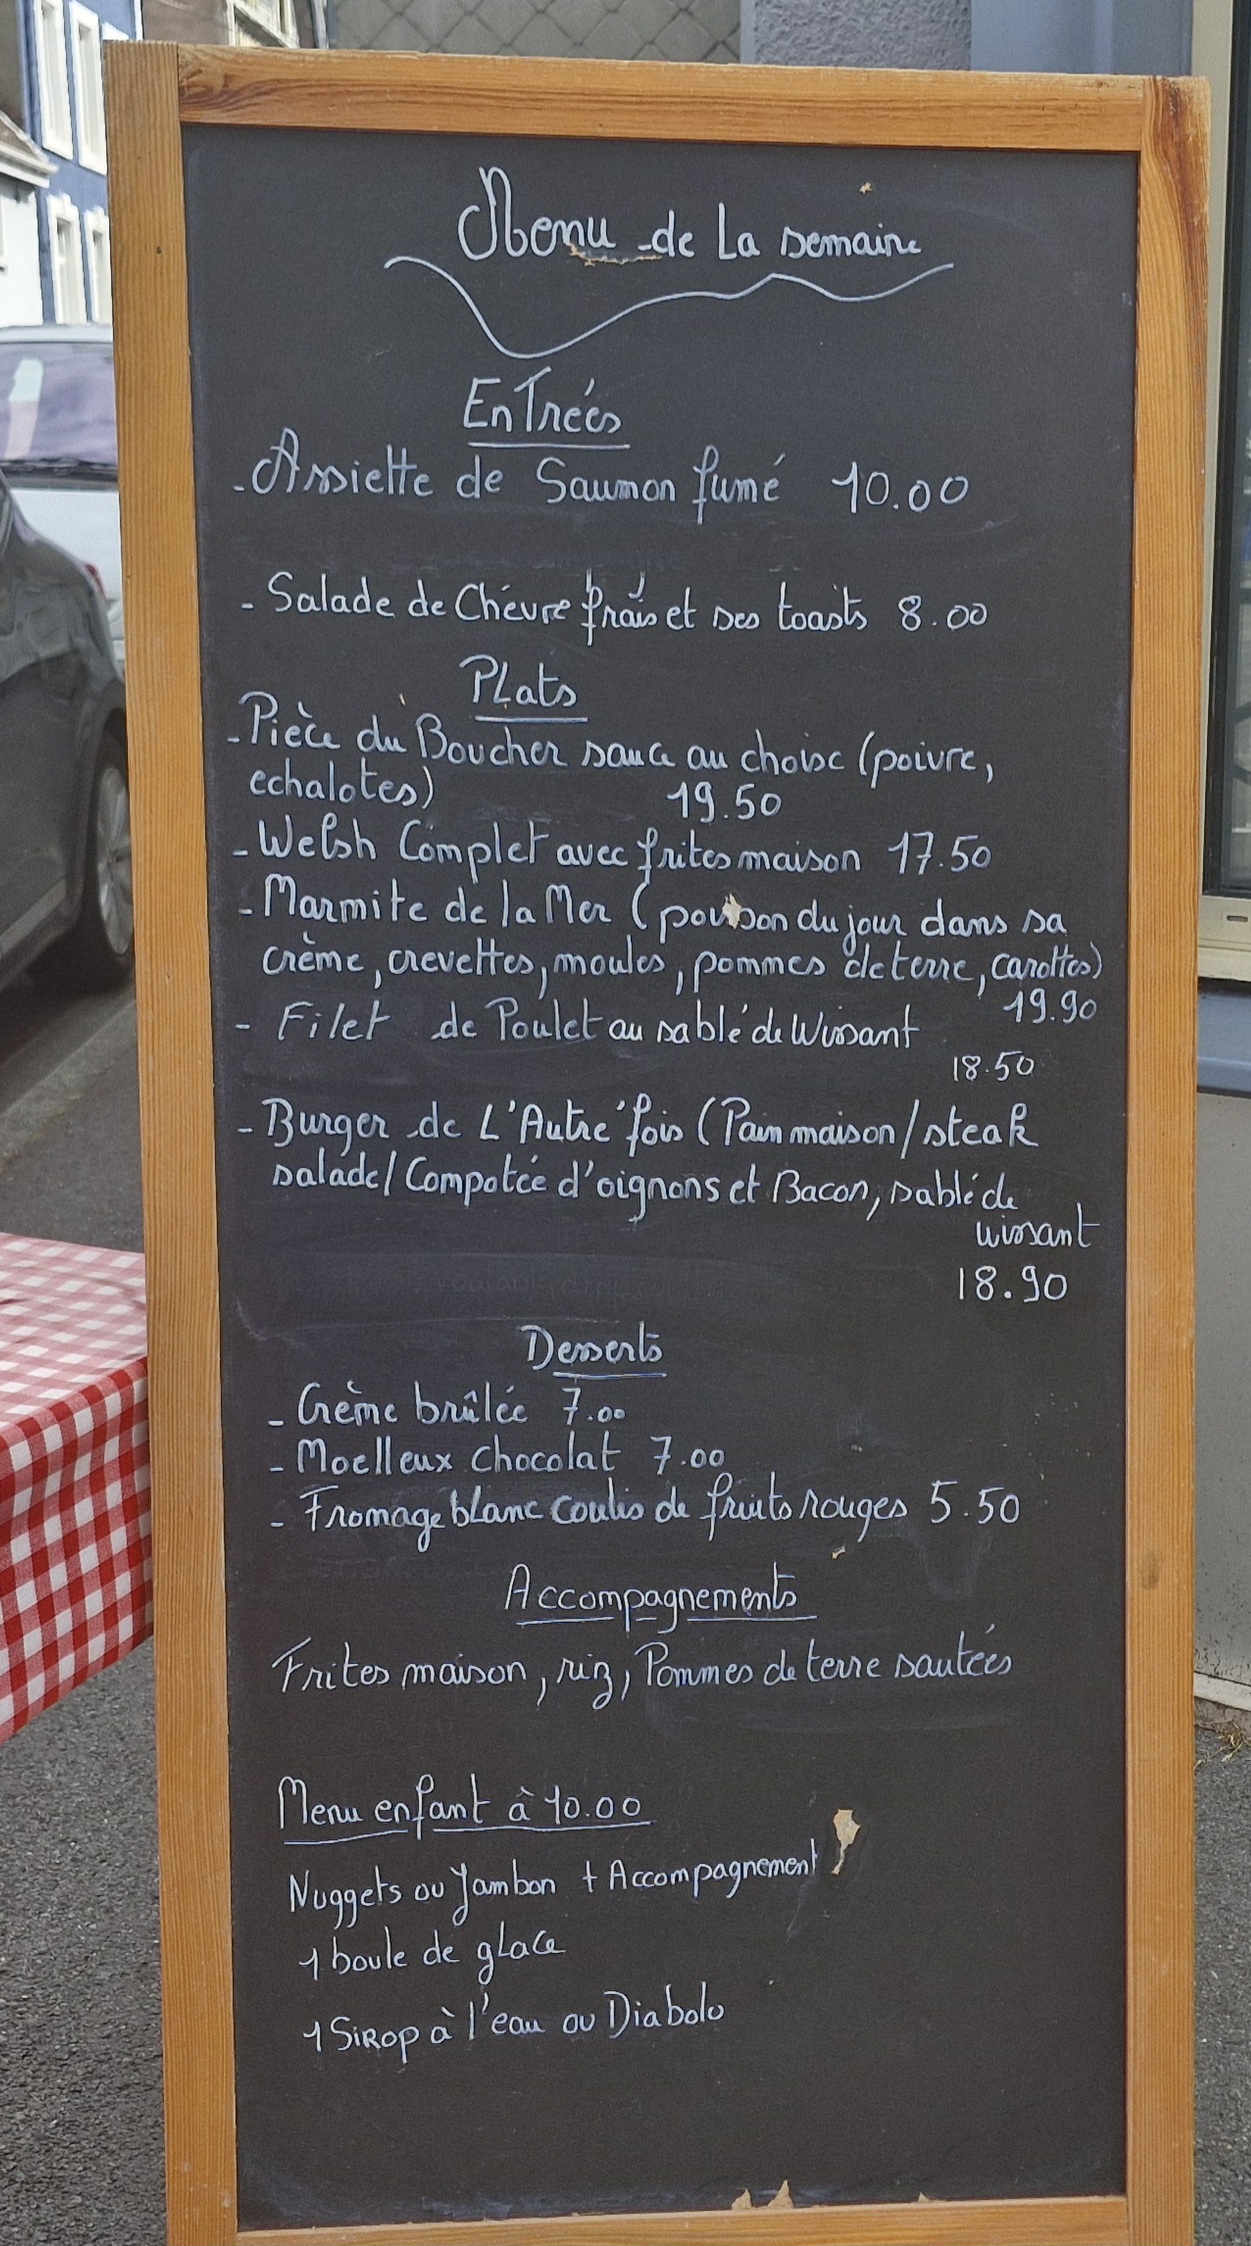 Menu de La semaine
EnTrées
- Assiette de Saumon fumé 10.00
- Salade de Chèvre frais et ses toasts 8.00
PLats
- Pièce du Boucher sauce au choix (poivre,
echalotes) 19.50
- Welsh Complet avec frites maison 17.50
- Marmite de la Mer (poisson du jour dans sa
crème, crevettes, moules, pommes de terre, carottes)
19.90
- Filet de Poulet au sablé de Wissant
18.50
- Burger de L'Autre'fois (Pain maison/steak
salade/Compotée d'oignons et Bacon, sablé de
wissant
18.90
Desserts
- Crème brûlée 7.00
- Moelleux chocolat 7.00
- Fromage blanc coulis de fruits rouges 5.50
Accompagnements
Frites maison, riz, Pommes de terre sautées
Menu enfant à 10.00
Nuggets ou Jambon + Accompagnement
1 boule de glace
1 SiRop à l'eau ou Diabolo